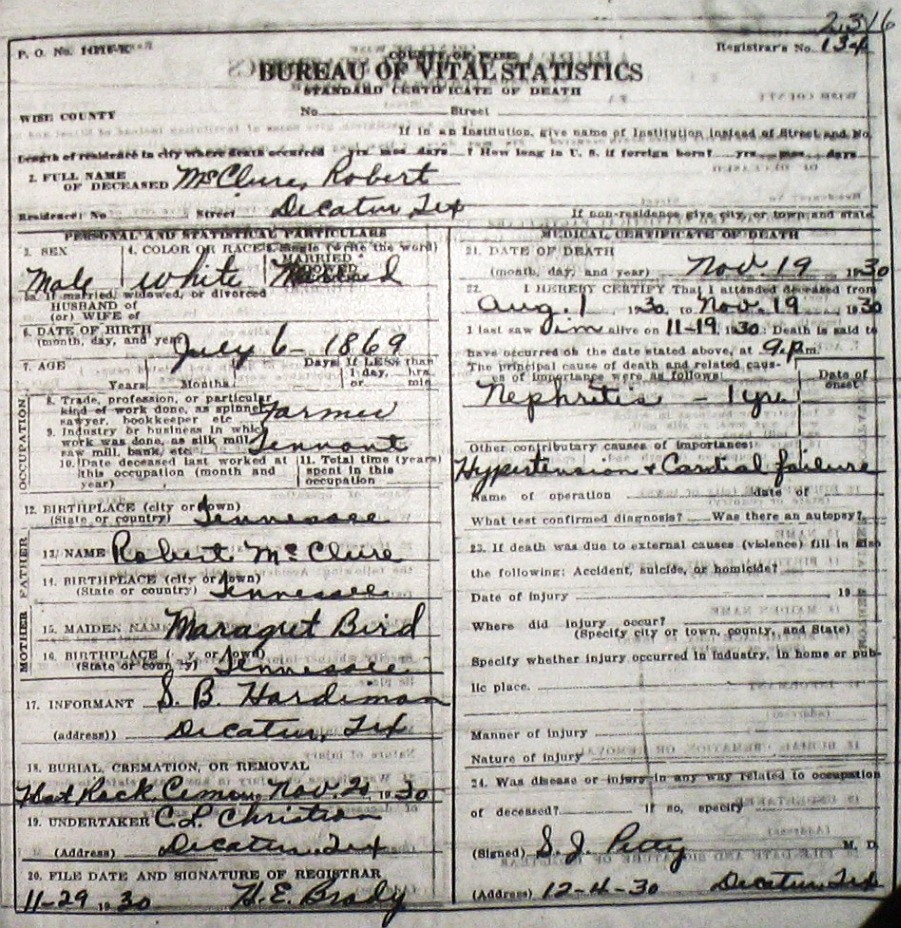 2316
P. O. No.
Registrar's No. 134
COUNTY OF WISE
BUREAU OF VITAL STATISTICS
STANDARD CERTIFICATE OF DEATH
WISE COUNTY No. Street
If in an Institution, give name of Institution instead of Street and No.
Length of residence in city where death occurred yrs. mos. days ? How long in U. S. if foreign born? yrs. mos. days
2. FULL NAME OF DECEASED McClure, Robert
Residence: No. Street Decatur, Tex
If non-residence give city, or town and state
PERSONAL AND STATISTICAL PARTICULARS
3. SEX Male
4. COLOR OR RACE white
(write the word) MARRIED
5a. If married, widowed, or divorced
HUSBAND of
(or) WIFE of
6. DATE OF BIRTH
(month, day, and year) July 6 - 1869
7. AGE Years Months Days If LESS than 1 day, hrs. or min.
OCCUPATION
8. Trade, profession, or particular kind of work done, as spinner sawyer, bookkeeper etc Farmer
9. Industry or business in which work was done, as silk mill saw mill, bank, etc. Tennant
10. Date deceased last worked at this occupation (month and year)
11. Total time (years) spent in this occupation
12. BIRTHPLACE (city or town)
(State or country) Tennessee
FATHER
13. NAME Robert McClure
14. BIRTHPLACE (city or town)
(State or country) Tennessee
MOTHER
15. MAIDEN NAME Maragret Bird
16. BIRTHPLACE (city or town)
(State or country) Tennessee
17. INFORMANT S. B. Hardeman
(address)) Decatur, Tex
18. BURIAL, CREMATION, OR REMOVAL
Flat Rock Cem Nov. 20 1930
19. UNDERTAKER C. L. Christian
(Address) Decatur, Tex
20. FILE DATE AND SIGNATURE OF REGISTRAR
11-29 1930 H. E. Brady
MEDICAL CERTIFICATE OF DEATH
21. DATE OF DEATH
(month, day, and year) Nov. 19 1930
22. I HEREBY CERTIFY That I attended deceased from
Aug. 1 1930, to Nov. 19 1930
I last saw him alive on 11-19, 1930: Death is said to
have occurred on the date stated above, at 9 p.m.
The principal cause of death and related causes of importance were as follows: Date of onset
Nephritis - 1 yr
Other contributary causes of importance:
Hypertension + Cardial failure
Name of operation date of
What test confirmed diagnosis? Was there an autopsy?
23. If death was due to external causes (violence) fill in also
the following: Accident, suicide, or homicide?
Date of injury 19
Where did injury occur?
(Specify city or town, county, and State)
Specify whether injury occurred in industry, in home or public place.
Manner of injury
Nature of injury
24. Was disease or injury in any way related to occupation
of deceased? If so, specify
(Signed) S. J. Petty M. D.
(Address) 12-4-30 Decatur, Tex